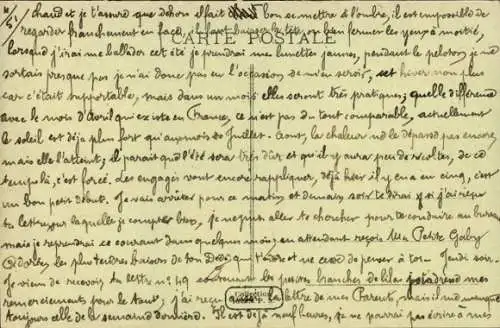 chaud et je t'assure que dehors il fait bon se mettre à l'ombre, il est impossible de
regarder franchement en face, il faut baisser la tête et bien fermer les yeux à moitié,
CARTE POSTALE
lorsque j'irai me ballader cet été je prendrai mes lunettes jaunes, pendant le peloton je ne
sortais presque pas je n'ai donc pas eu l'occasion de m'en servir, cet hiver non plus
car c'était supportable, mais dans un mois elles seront très pratiques; quelle différence
avec le mois d'Avril qui existe en France, ce n'est pas du tout comparable, actuellement
le soleil est déjà plus fort qu'au mois de Juillet-Août, la chaleur ne le dépasse pas encore,
mais elle l'atteint; il paraît que l'été sera très dur et qu'il y aura peu de récoltes, de ce
temps là, c'est forcé. Les engagés vont encore rappliquer, déjà hier il y en a eu cinq, c'est
un bon petit début. Je vais arrêter pour ce matin et demain soir te dirai si j'ai reçu
ta lettre sur laquelle je compte, je ne puis aller te chercher pour te conduire au bureau
mais je reprendrai ce courant dans quelques mois; en attendant reçois Ma Petite Gaby
adorée, les plus tendres baisers de ton Dédé qui t'adore et ne cesse de penser à toi. Jeudi soir.
Je viens de recevoir ta lettre n° 49 contenant les pauvres branches de lilas, tendrai mes
remerciements pour le tout; j'ai reçu aussi la lettre de mes Parents, mais il me manque
toujours celle de la semaine dernière. Il est déjà neuf heures, je ne pourrai pas écrire à mes